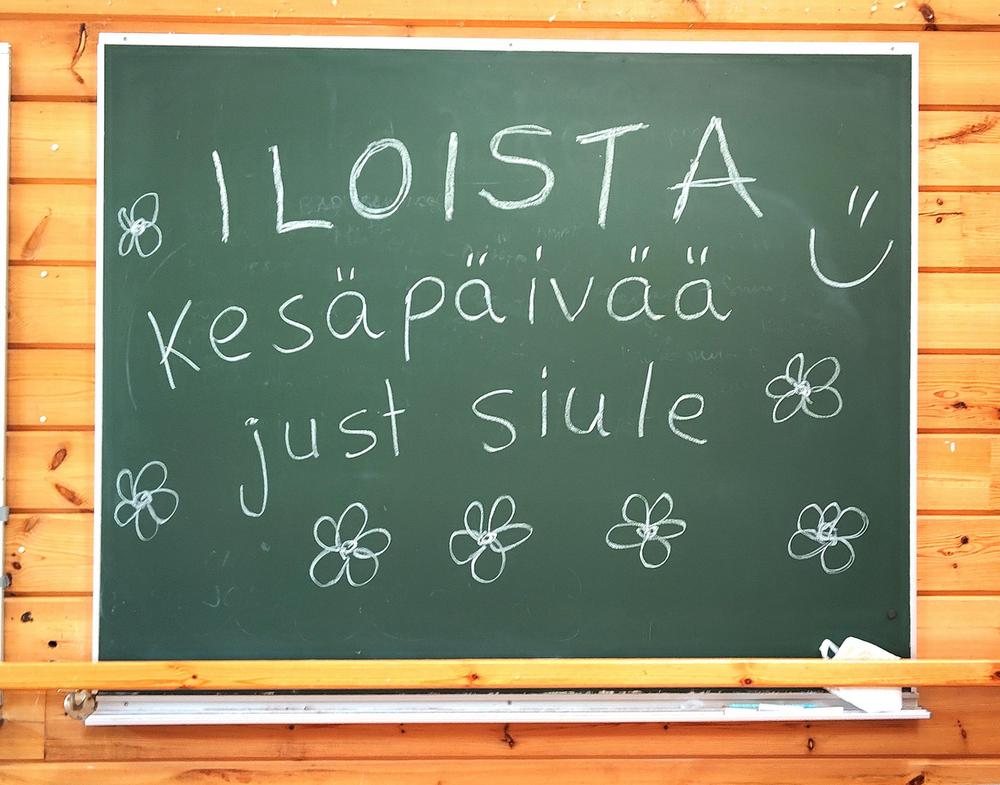 ILOISTA
kesäpäivää
just siule